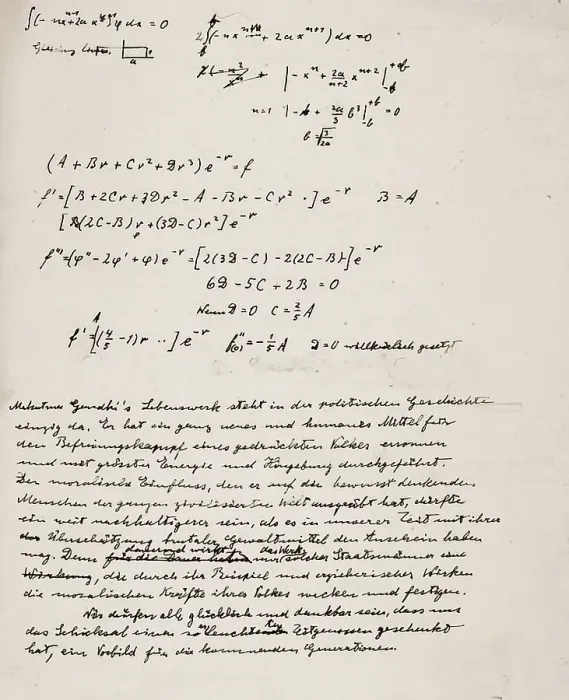 ∫(-nx^{n-1}+2αx^{n+1})φ dx = 0
2∫(-nx^{n-1}+2αx^{n+1})dx = 0
a
|-x^n + 2α/(n+2) x^{n+2}|_{-b}^{+b}
n=1 |-b + 2α/3 b^3|_{-b}^{+b} = 0
b = √(3/2α)
(A + Br + Cr² + Dr³)e^{-r} = f
f' = [B + 2Cr + 3Dr² - A - Br - Cr² · ]e^{-r} B = A
[(2C-B)r + (3D-C)r²]e^{-r}
f''' = (φ'' - 2φ' + φ)e^{-r} = [2(3D-C) - 2(2C-B)]e^{-r}
6D - 5C + 2B = 0
Wenn D = 0 C = 2/5 A
f' = A[(4/5 - 1)r ··]e^{-r} f''(0) = -1/5 A D = 0 willkürlich gesetzt
Mahatma Gandhi's Lebenswerk steht in der politischen Geschichte
einzig da. Er hat ein ganz neues und humanes Mittel für
den Befreiungskampf eines gedrückten Volkes ersonnen
und mit grösster Energie und Hingebung durchgeführt.
Der moralische Einfluss, den er auf die bewusst denkenden
Menschen der ganzen zivilisierten Welt ausgeübt hat, dürfte
ein weit nachhaltigerer sein, als es in unserer Zeit mit ihrer
Überschätzung brutaler Gewaltmittel den Anschein haben
dauernd wirkt das Werk
mag. Denn für die Dauer haben nur solcher Staatsmänner eine
Wirkung, die durch ihr Beispiel und erzieherisches Wirken
die moralischen Kräfte ihres Volkes wecken und festigen.
Wir dürfen alle glücklich und dankbar sein, dass uns
das Schicksal einen so leuchtenden Zeitgenossen geschenkt
hat, ein Vorbild für die kommenden Generationen.